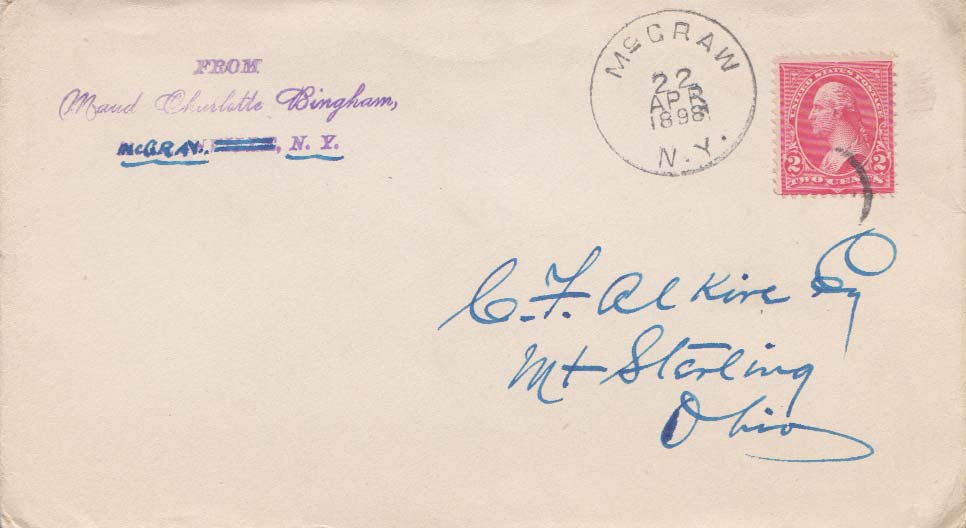 FROM
Maud Charlotte Bingham,
McGRAW, N. Y.
McGRAW
22
APR
1898
N.Y.
UNITED STATES POSTAGE
2 2
TWO CENTS
C. F. Alkire Esq
Mt Sterling
Ohio